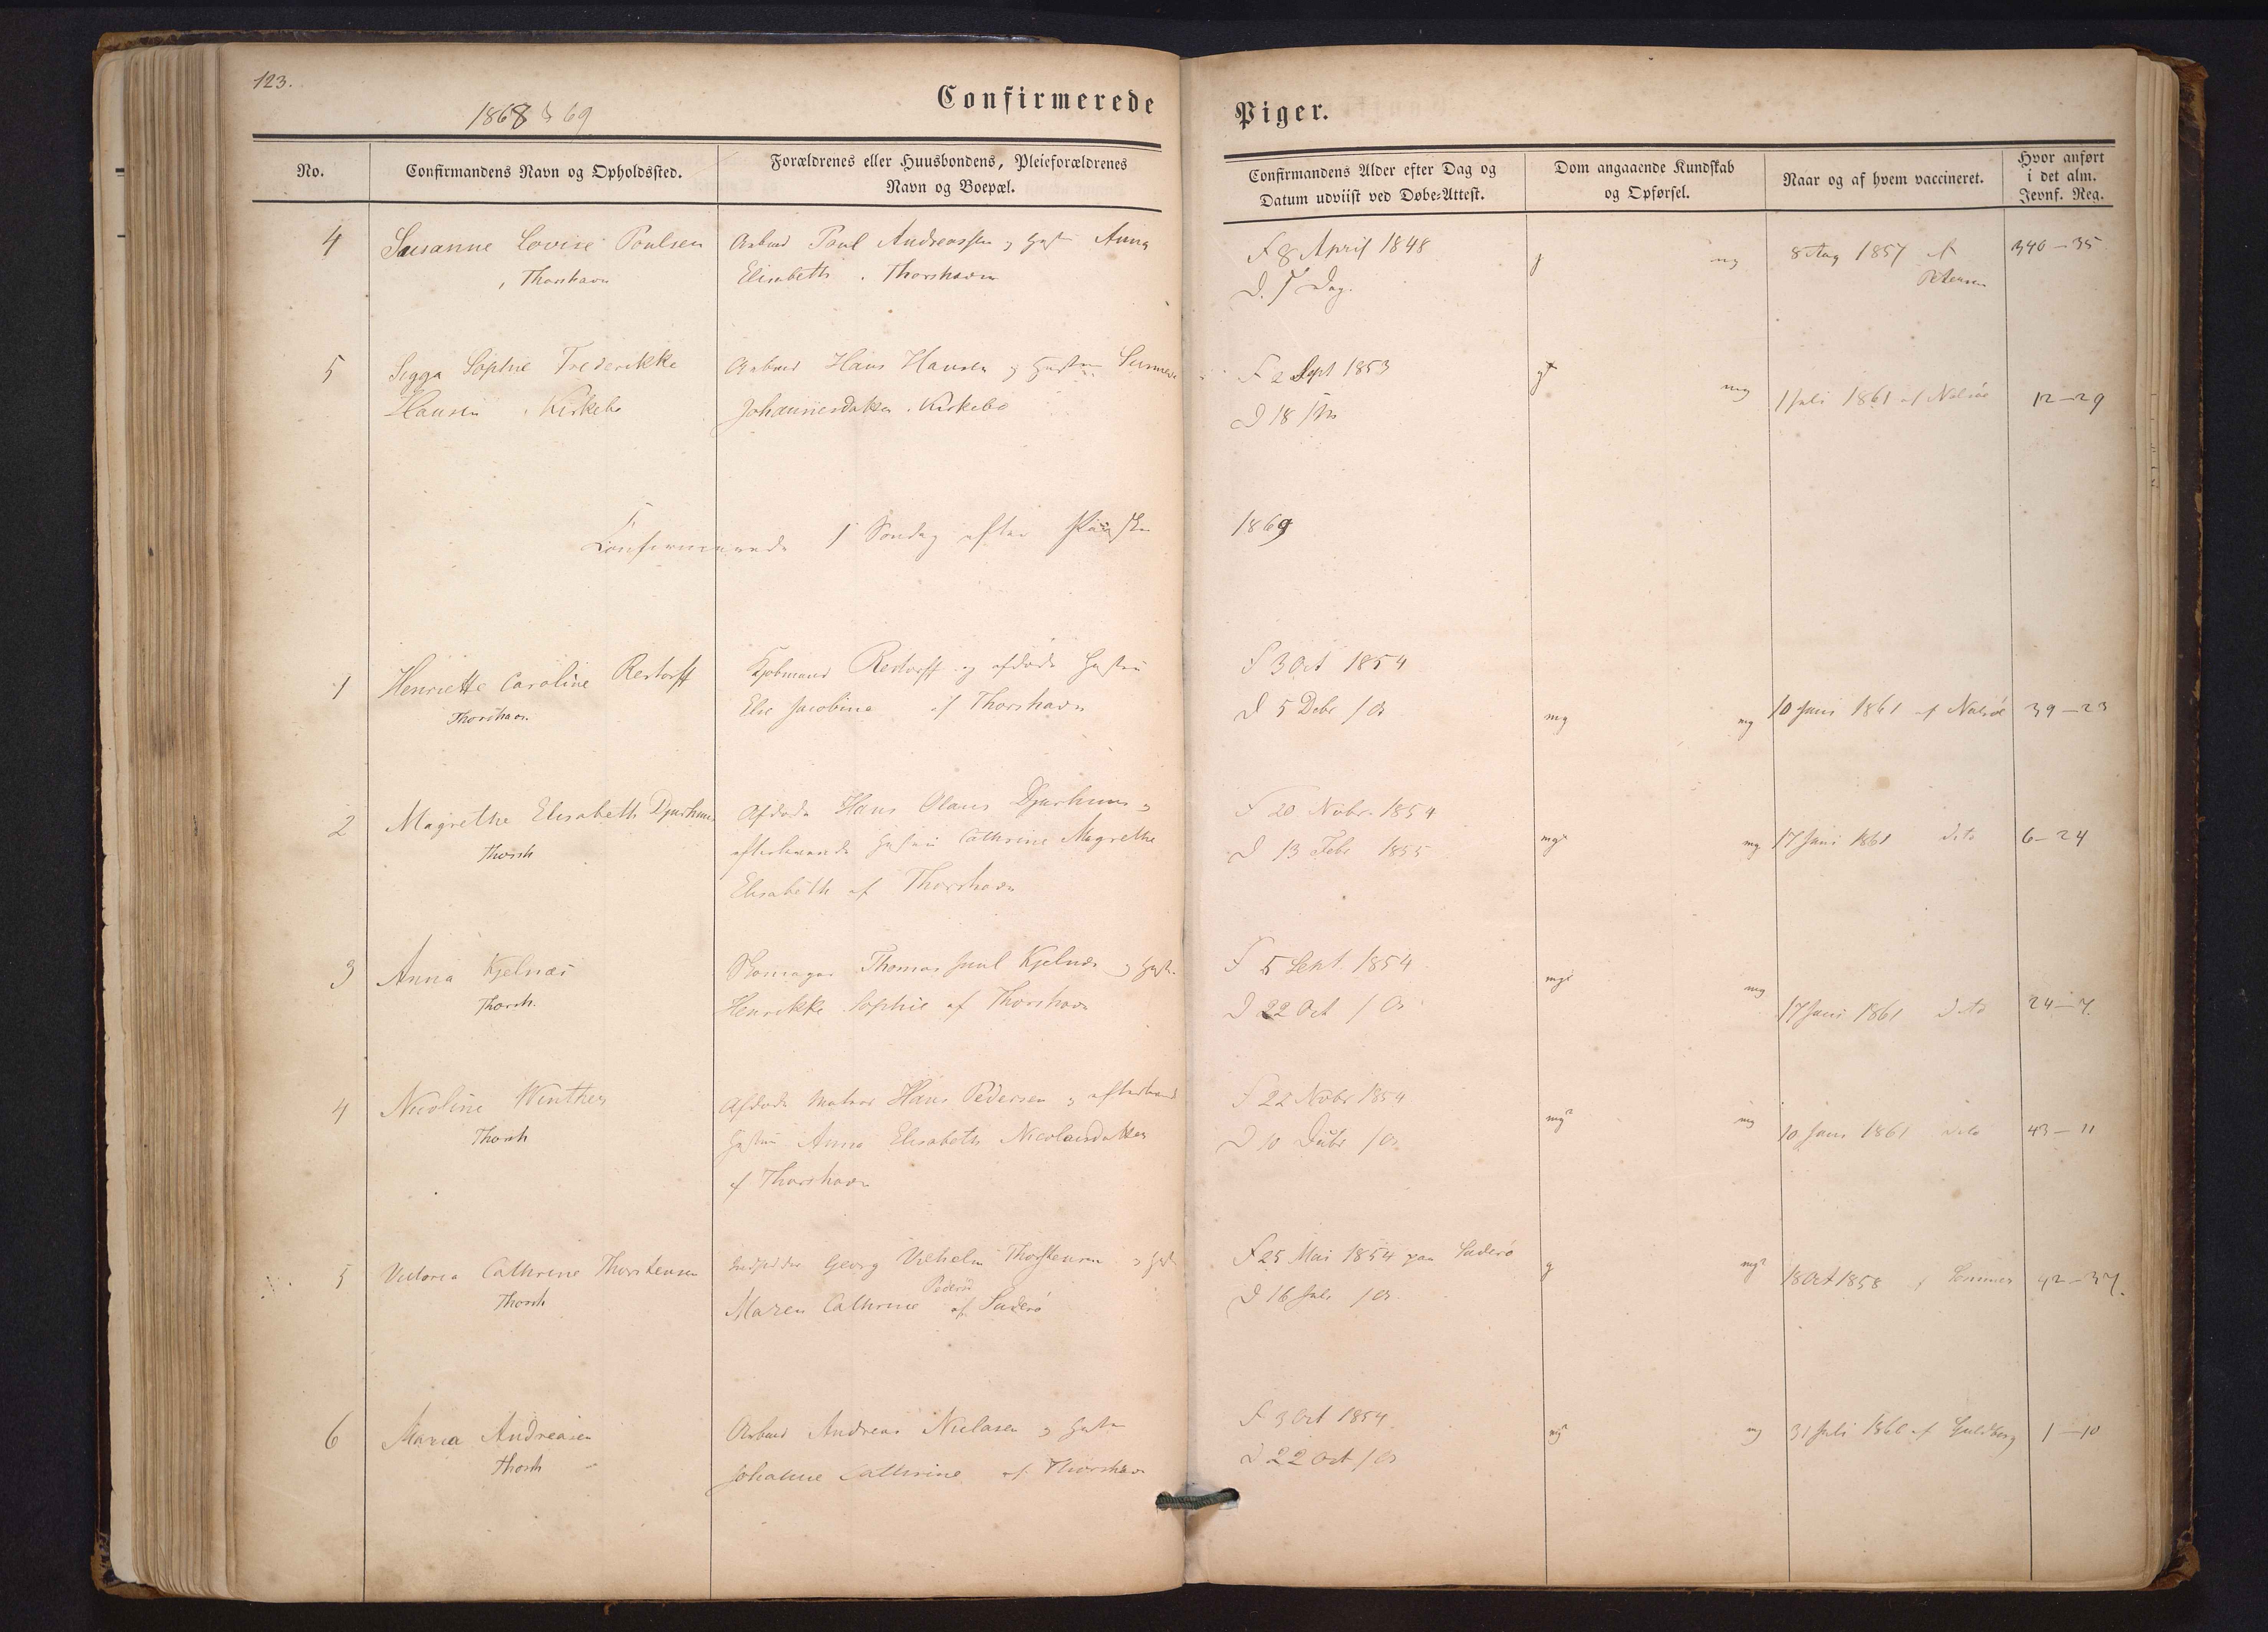 123.
1868 & 69
Confirmerede Piger.
No.
Confirmandens Navn og Opholdssted.
Forældrenes eller Huusbondens, Pleieforældrenes
Navn og Boepæl.
Confirmandens Alder efter Dag og
Datum udviist ved Døbe-Attest.
Dom angaaende Kundskab
og Opførsel.
Naar og af hvem vaccineret.
Hvor anført
i det alm.
Jevnf. Reg.
4 Susanne Lovise Poulsen
Thorshavn
Arbmd Poul Andreassen og Hustru Anna
Elisabeth . Thorshavn
F 8 April 1848
D. 7 Dag.
g mg
8 Aug 1857 af
Petersen
340-35
5 Sigga Sophie Frederikke
Hansen . Kirkebø
Arbmd Hans Hansen og Hustru
Johannesdatter . Kirkebø
F 2 Sept 1853
D 18
mg
1 Juli 1861 af Nolsøe
12-29
Confirmerede 1 Søndag efter Paaske 1869
1 Henriette Caroline Restorff
Thorshavn
Kjøbmand Restorff og afdøde Hustru
Else Jacobine af Thorshavn
F 3 Oct 1854
D 5 Debr
mg mg
10 Juni 1861 af Nolsøe
39-23
2 Magrethe Elisabeth Djurhuus
Thorsh
Afdøde Hans Olaus Djurhuus og
efterlevende Hustru Cathrine Magrethe
Elisabeth af Thorshavn
F 20 Nobr. 1854
D 13 Febr 1855
mg mg
17 Juni 1861 dito
6-24
3 Anna Kjelnæs
Thorsh.
Skomager Thomas Juul Kjelnæs og Hust.
Henrikke Sophie af Thorshavn
F 5 Sept 1854
D 22 Oct
mg mg
17 Juni 1861 dito
24-7.
4 Nicoline Winther
Thorsh
Afdøde Matros Hans Pedersen og
Hustru Anna Elisabeth Nicolaisdatter
af Thorshavn
F 22 Nobr 1854
D 10
mg mg
10 Juni 1861 dito
43-11
5 Victoria Cathrine Thorstensen
Thorsh
Georg Vilhelm Thorstensen og
Maren Cathrine af Suderø
F 25 Mai 1854 paa Suderø
D 16 Juli
g mg
18 Oct 1858 af
42-37.
6 Maria Andreasen
Thorsh
Arbmd Andreas Nielasen og Hustru
Johanne Cathrine af Thorshavn
F 3 Oct 1854
D 22 Oct
mg mg
31 Juli 1860 af Guldberg
1-10